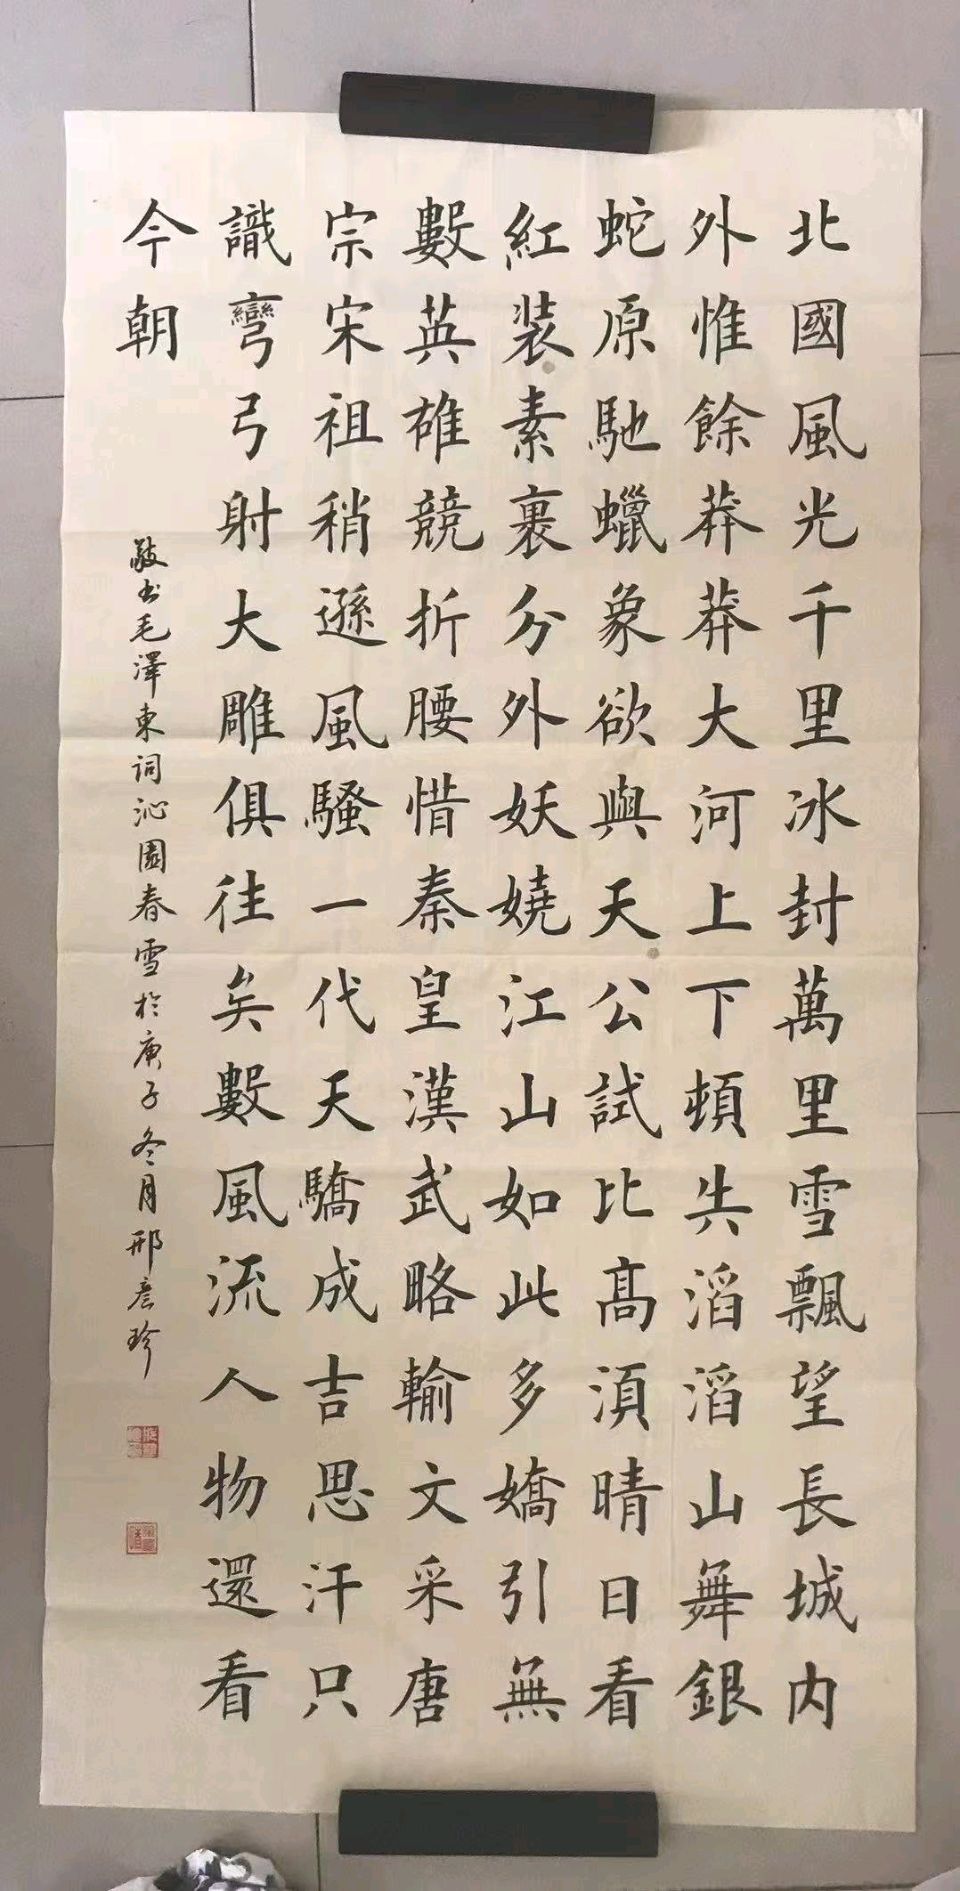 北國風光千里冰封萬里雪飄望長城内
外惟餘莽莽大河上下頓失滔滔山舞銀
蛇原馳蠟象欲與天公試比高湏晴日看
紅装素裹分外妖嬈江山如此多嬌引無
數英雄競折腰惜秦皇漢武略輸文采唐
宗宋祖稍遜風騷一代天驕成吉思汗只
識彎弓射大雕俱往矣數風流人物還看
今朝
敬书毛澤東词沁園春雪於庚子冬月邢彦珍